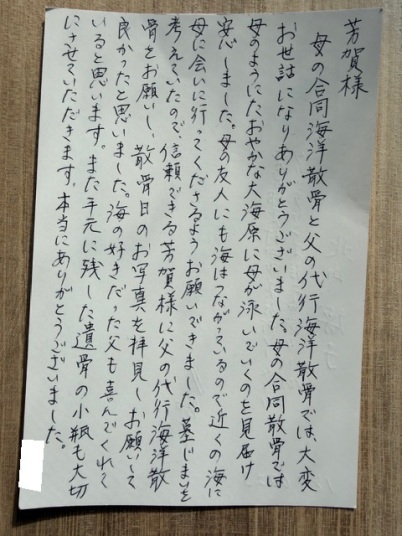 芳賀様
母の合同海洋散骨と父の代行海洋散骨では、大変
お世話になりありがとうございました。母の合同散骨では
母のようにたおやかな大海原に母が泳いでいくのを見届け
安心しました。母の友人にも海はつながっているので近くの海に
母に会いに行ってくださるようお願いできました。墓じまいを
考えていたので、信頼できる芳賀様に父の代行海洋散
骨をお願いし、散骨日のお写真を拝見し、お願いして
良かったと思いました。海の好きだった父も喜んでくれて
いると思います。また手元に残した遺骨の小瓶も大切
にさせていただきます。本当にありがとうございました。